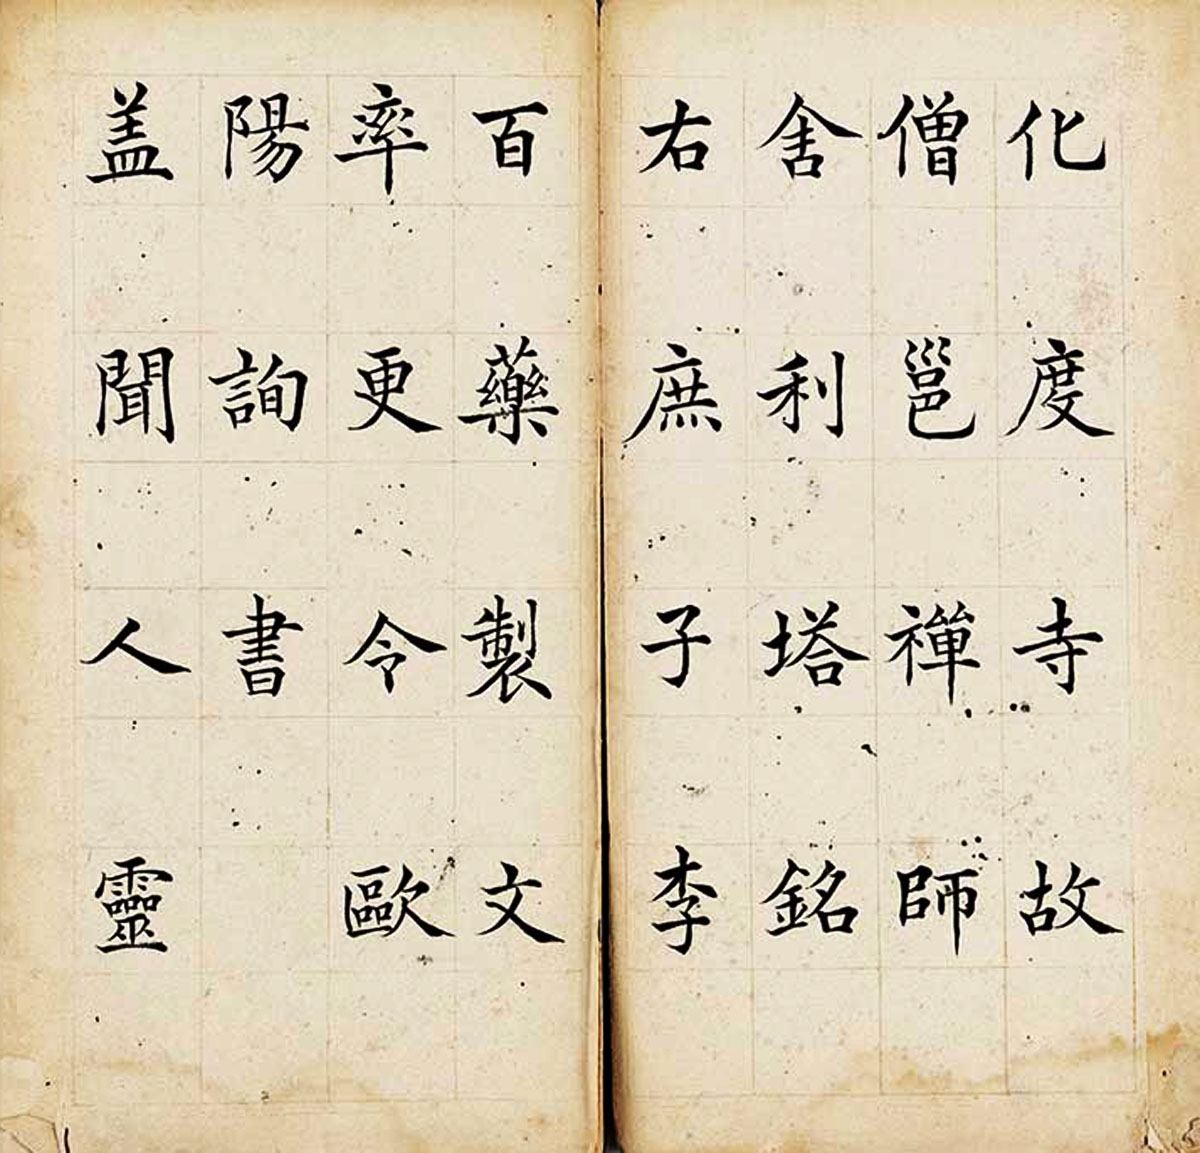 化度寺故
僧邕禪師
舍利塔銘
右庶子李
百藥製文
率更令歐
陽詢書
盖聞人靈